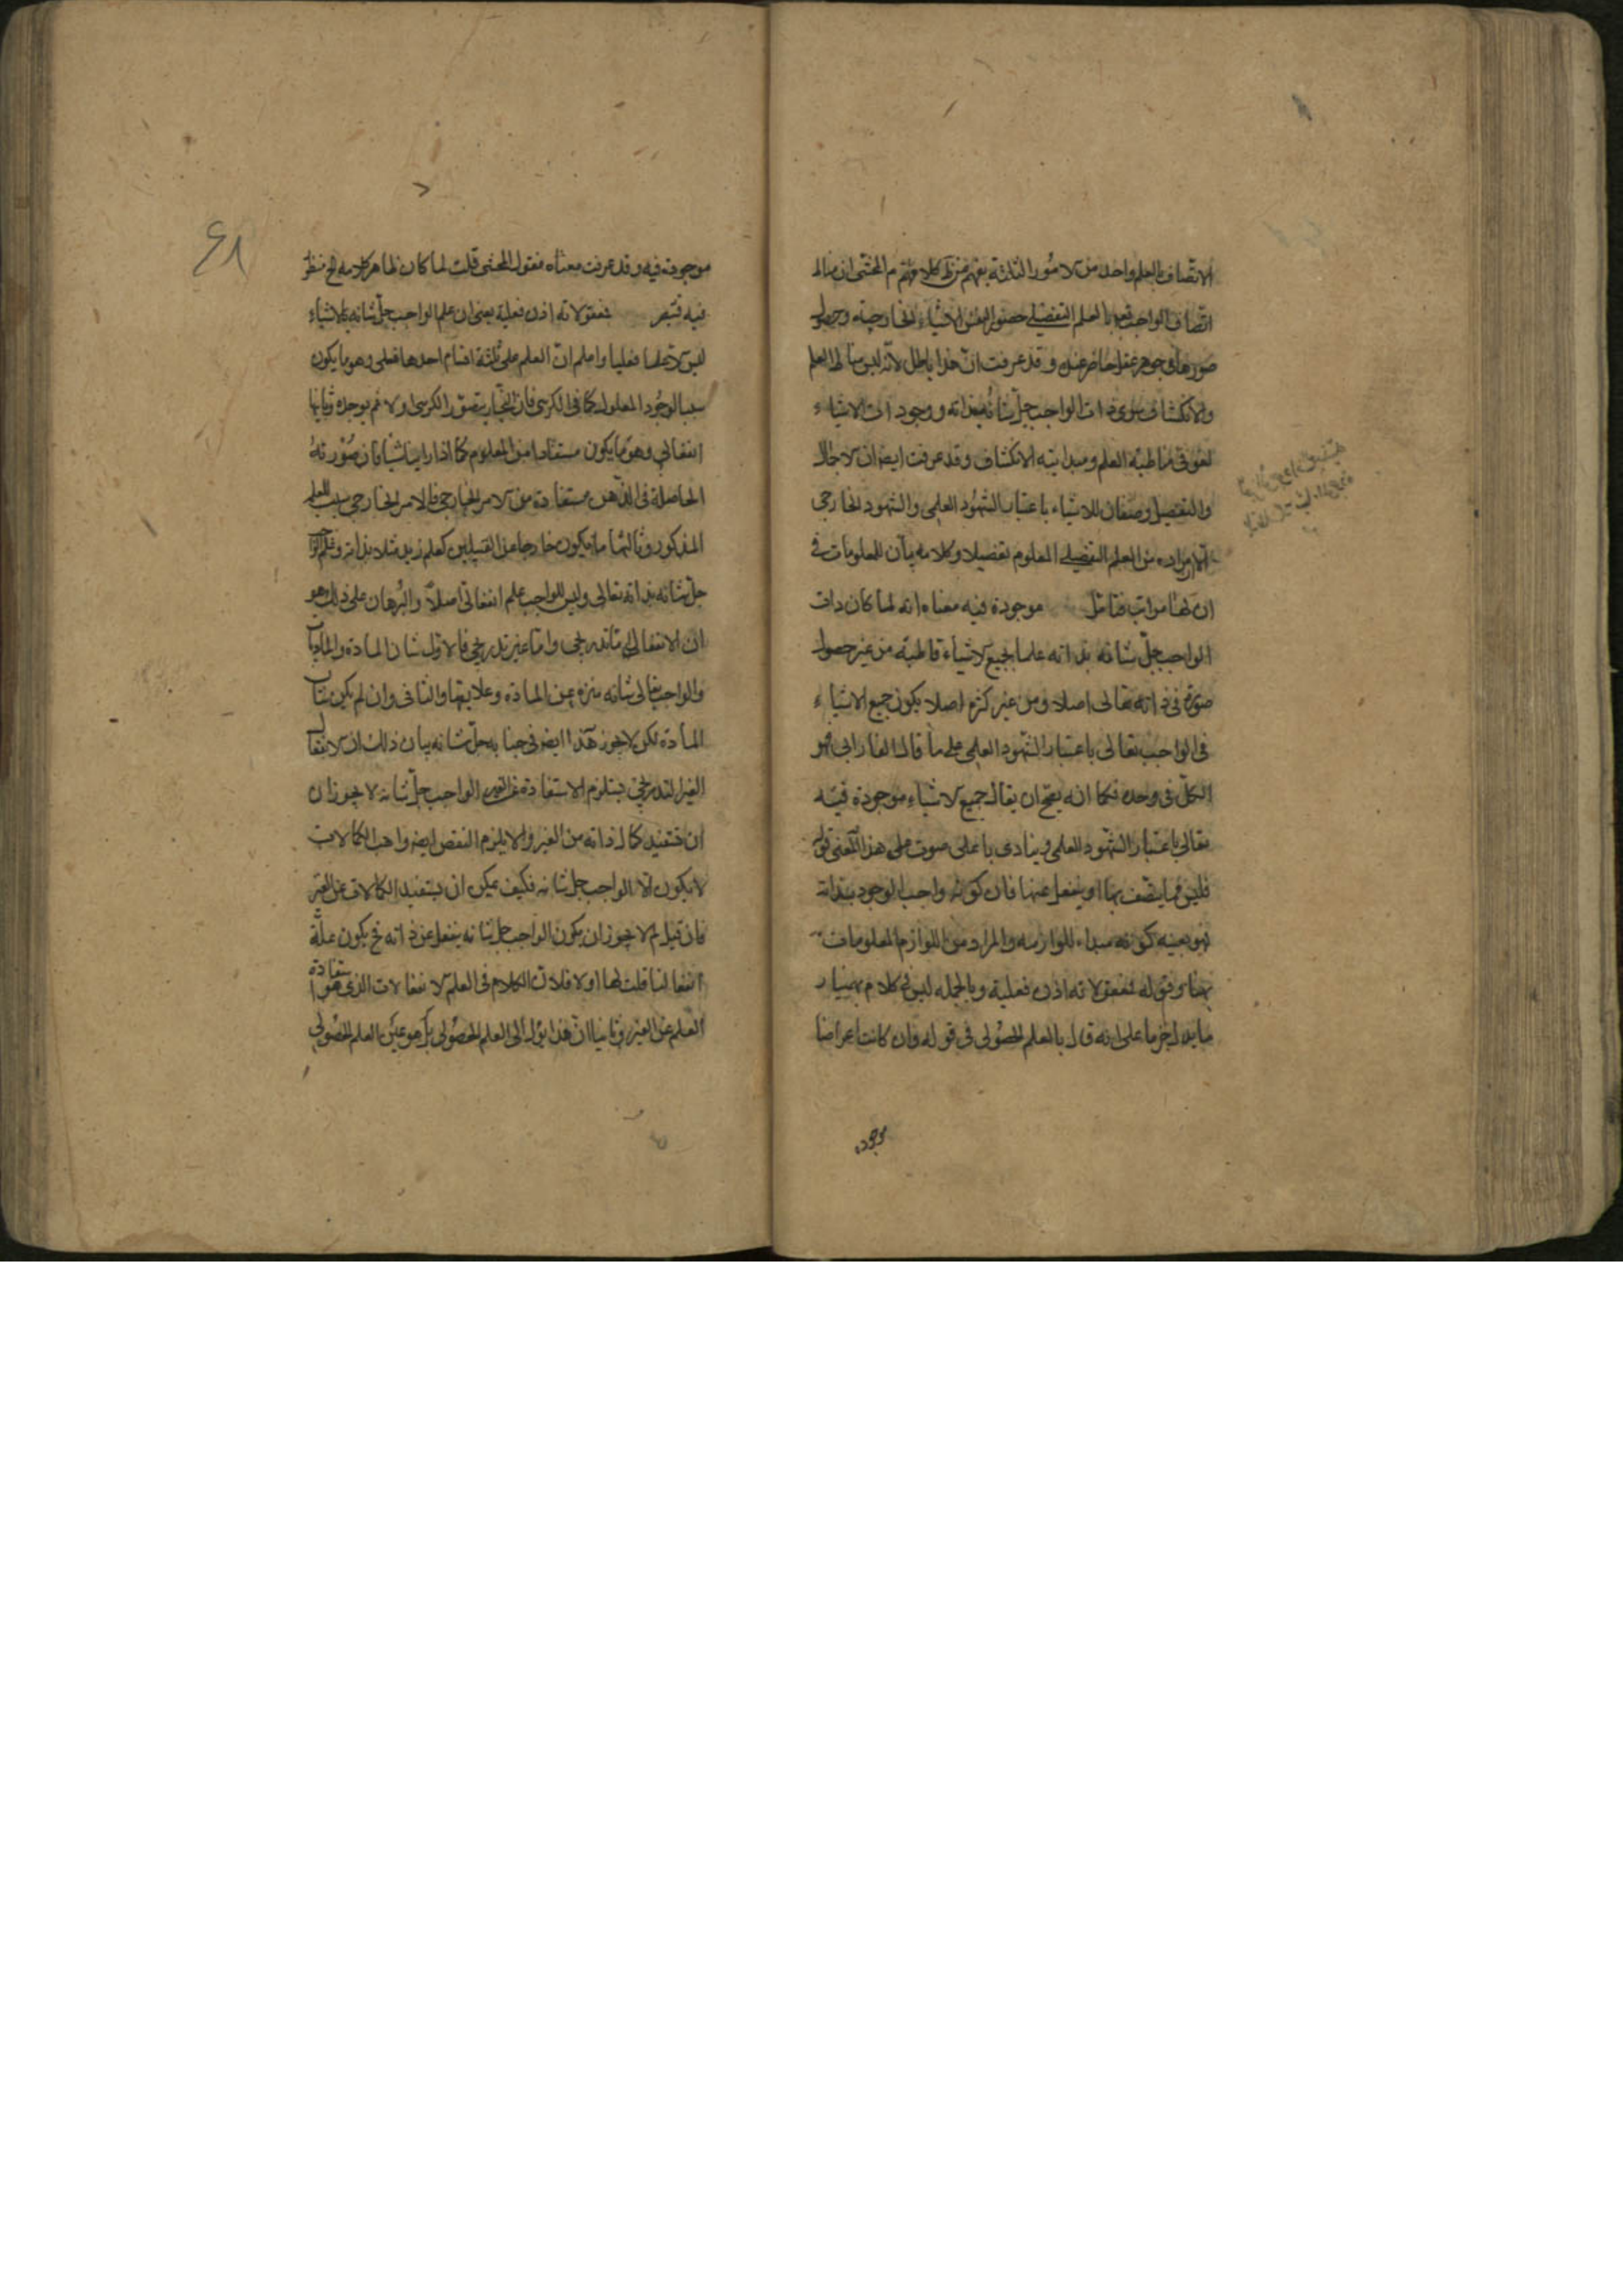 الاتصاف بالعلم واحد من الامور الثلثة يفهم من كلامهم م المحشى ان مناط
اتصاف الواجب تعه بالعلم التفصيلى حضور انفس الاشياء الخارجية وحصول
صورها فى جوهر عقلى حاضر عنده وقد عرفت ان هذا باطل لانه ليس مناط العلم
والانكشاف سوى ذات الواجب جل شانه بذاته ووجودات الاشياء
لغو فى مناطية العلم ومبدائيته الانكشاف وقد عرفت ايضا ان الاجمال
والتفصيل وصفان للاشياء باعتبار الشهود العلمى والشهود الخارجى
من العلم التفصيلى المعلوم تفصيلا وكلامه بيان للمعلومات فى
ان لها مراتب فتامل موجودة فيه معناه انه لما كان ذات
الواجب جل شانه بذاته علما بجميع الاشياء قاطبة من غير حصول
صورة فى ذاته تعالى اصلا ومن غير كثرة اصلا يكون جميع الاشياء
فى الواجب تعالى باعتبار الشهود العلمى على ما قال الفارابى فهو
الكل فى وحدة فكما انه يصح ان يقال جميع الاشياء موجودة فيه
تعالى باعتبار الشهود العلمى وينادى باعلى صوت على هذا المعنى قوله
فليس مما يتصف بها او ينفعل عنها فان كونه واجب الوجود بذاته
فهو بعينه كونه مبداء للوازمه والمراد من اللوازم المعلومات
وقوله فنقول لانه اذن فعلية وبالجملة ليس فى كلام بهمنيار
ما يدل جزما على انه قال بالعلم الحصولى فى قوله وان كانت اعراضا
موجوده
٤٨
موجودة فيه وقد عرفت معناه فقول المحشى قلت لما كان ظاهر كلامه الخ منظر
فيه فتبصر فنقول لانه اذن فعلية يعنى ان علم الواجب جل شانه بالاشياء
ليس الا علما فعليا واعلم ان العلم على ثلثة اقسام احدها فعلى وهو ما يكون
سببا لوجود المعلول كما فى الكرسى فان النجار يتصور الكرسى اولا ثم يوجده وثانيها
انفعالى وهو ما يكون مستفادا من المعلوم كما اذا رايت شيئا فان صورته
الحاصلة فى الذهن مستفادة من الامر الخارجى فالامر الخارجى سبب للعلم
المذكور وثالثها ما يكون خارجا من القبيلين كعلم زيد مثلا بذاته وعلم الواجب
جل شانه بذاته تعالى وليس للواجب علم انفعالى اصلا والبرهان على ذلك هو
ان الانفعال اما تدريجى واما غير تدريجى فالاول شان المادة والماديات
والواجب تعالى شانه منزه عن المادة وعلايقها والثانى وان لم يكن شان
المادة لكن لا يجوز هذا ايضا فى جنابه جل شانه بيان ذلك ان الانفعال
الغير التدريجى يستلزم الاستفادة عن الغير الواجب جل شانه لا يجوز ان
ان يستفيد كمال ذاته من الغير والا يلزم النقص ايضا واهب الكمالات
لا يكون الا الواجب جل شانه فكيف يمكن ان يستفيد الكمالات عن الغير
فان قيل لم لا يجوز ان يكون الواجب جل شانه ينفعل عن ذاته فح يكون علة
انفعالنا قلت لها اولا فلان الكلام فى العلم الانفعالات الذى هو استفادة
العلم عن الغير وثانيا ان هذا يؤل الى العلم الحصولى بل هو عين العلم الحصولى